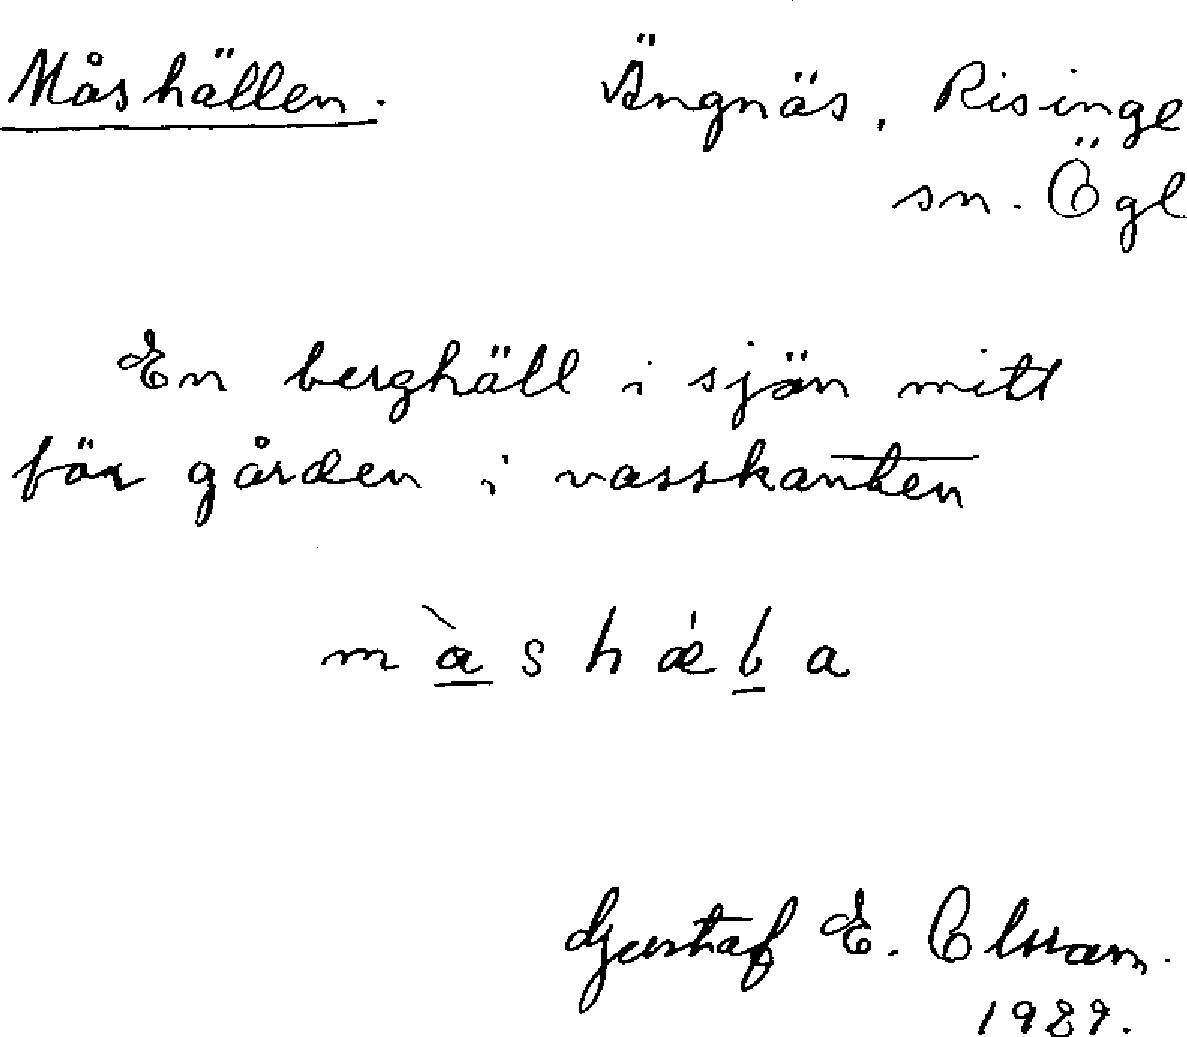 Måshällen.
Ängnäs, Risinge
sn. Ögl
En berghäll i sjön mitt
för gården i vasskanten
m à s h ǽ l a
Gustaf E. Olsson.
1929.